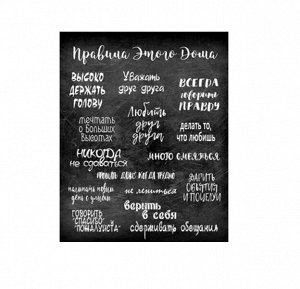 Правила Этого Дома
ВЫСОКО
ДЕРЖАТЬ
ГОЛОВУ
Уважать
друг друга
ВСЕГДА
говорить
ПРАВДУ
Любить
друг
друга
мечтать
о больших
высотах
делать то,
что любишь
НИКОГДА
не сдаваться
много смеяться
даже когда трудно
ДАРИТЬ
ОБЪЯТИЯ
И ПОЦЕЛУИ
начинать новый
день с улыбки
не лениться
верить
в себя
ГОВОРИТЬ
"СПАСИБО"
"ПОЖАЛУЙСТА"
сдерживать обещания